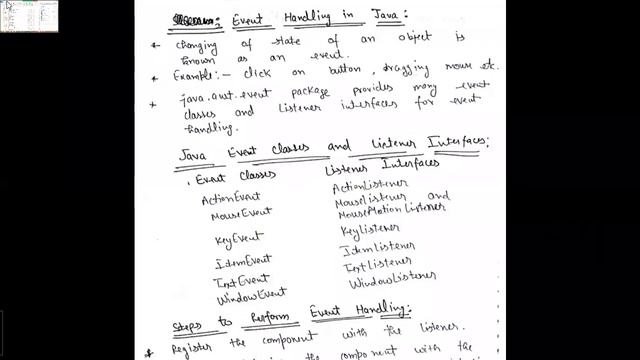 Event Handling in Java:
* Changing of state of an object is
known as an event.
* Example:- click on button, dragging mouse etc.
* java.awt.event package provides many event
classes and Listener interfaces for event
handling.
Java Event classes and Listener Interfaces:
Event Classes Listener Interfaces
ActionEvent ActionListener
MouseEvent MouseListener and
MouseMotionListener
KeyEvent KeyListener
ItemEvent ItemListener
TextEvent TextListener
WindowEvent WindowListener
Steps to Perform Event Handling:
* Register the component with the listener.
the component with the